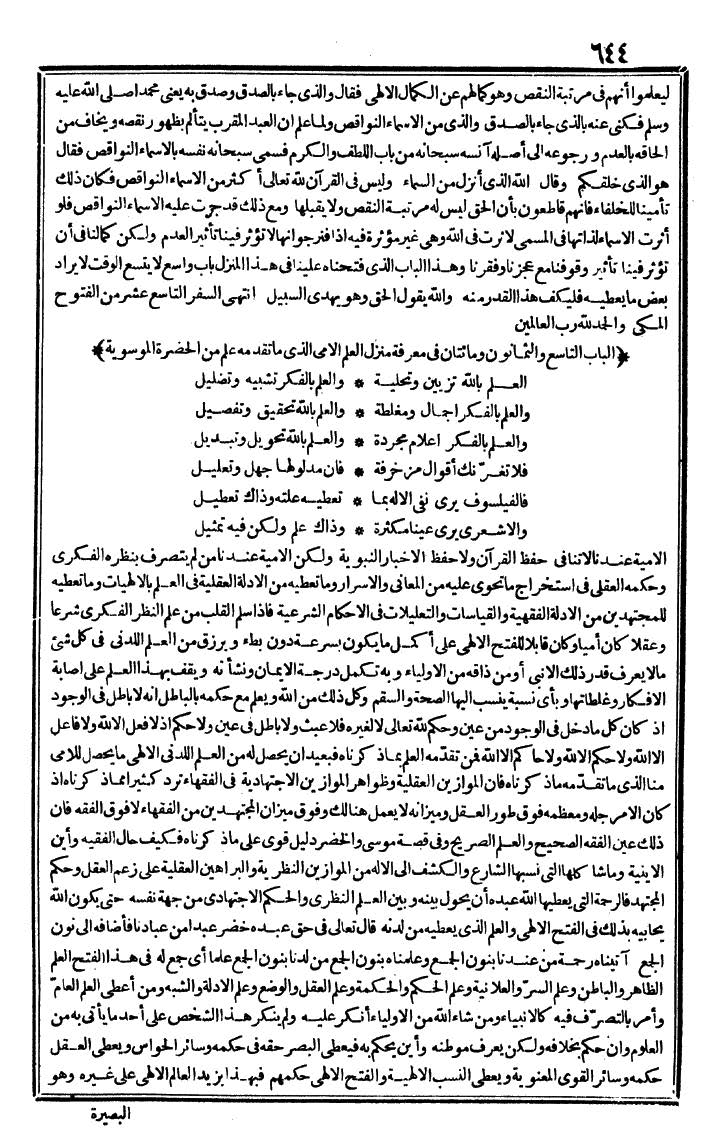 ٦٤٤
ليعلموا أنهم فى مرتبة النقص وهو كمالهم عن الكمال الالهى فقال والذى جاء بالصدق وصدق به يعنى محمدا صلى الله عليه
وسلم فكنى عنه بالذى جاء بالصدق والذى من الاسماء النواقص ولما علم ان العبد المقرب يتألم بظهور نقصه ويخاف من
الحاقه بالعدم ورجوعه الى أصله آنسه سبحانه من باب اللطف والكرم فسمى سبحانه نفسه بالاسماء النواقص فقال
هو الذى خلقكم وقال الله الذى أنزل من السماء وليس فى القرآن لله تعالى أكثر من الاسماء النواقص فكان ذلك
تأمينا للخلفاء فانهم قاطعون بأن الحق ليس له مرتبة النقص ولا يقبلها ومع ذلك قد جرت عليه الاسماء النواقص فلو
أثرت الاسماء لذاتها فى المسمى لاثرت فى الله وهى غير مؤثرة فيه اذا فنرجو انها لا تؤثر فينا تأثير العدم ولكن كمالنا فى أن
تؤثر فينا تأثير وقوفنا مع عجزنا وفقرنا وهذا الباب الذى فتحناه علينا فى هذا المنزل باب واسع لا يتسع الوقت لايراد
بعض ما يعطيه فليكف هذا القدر منه والله يقول الحق وهو يهدى السبيل انتهى السفر التاسع عشر من الفتوح
المكى والحمد لله رب العالمين
﴿الباب التاسع والثمانون ومائتان فى معرفة منزل العلم الامى الذى ما تقدمه علم من الحضرة الموسوية﴾
العلم بالله تزيين وتحلية * والعلم بالفكر تشبيه وتضليل
والعلم بالفكر اجمال ومغلطة * والعلم بالله تحقيق وتفصيل
والعلم بالفكر اعلام مجردة * والعلم بالله تحويل وتبديل
فلا تغرّنك أقوال مزخرفة * فان مدلولها جهل وتعليل
فالفيلسوف يرى نفى الاله بما * تعطيه علته وذاك تعطيل
والاشعرى يرى عينا مكثرة * وذاك علم ولكن فيه تمثيل
الامية عندنا لا تنافى حفظ القرآن ولا حفظ الاخبار النبوية ولكن الامية عندنا من لم يتصرف بنظره الفكرى
وحكمه العقلى فى استخراج ما تحوى عليه من المعانى والاسرار وما تعطيه من الادلة العقلية فى العلم بالالهيات وما تعطيه
للمجتهدين من الادلة الفقهية والقياسات والتعليلات فى الاحكام الشرعية فاذا سلم القلب من علم النظر الفكرى شرعا
وعقلا كان أميا وكان قابلا للفتح الالهى على أكمل ما يكون بسرعة دون بطء ويرزق من العلم اللدنى فى كل شئ
مالا يعرف قدر ذلك الانبى أو من ذاقه من الاولياء وبه تكمل درجة الايمان ونشأنه ويقف بهذا العلم على اصابة
الافكار وغلطاتها وبأى نسبة ينسب اليها الصحة والسقم وكل ذلك من الله ويعلم مع حكمه بالباطل انه لا باطل فى الوجود
اذ كان كل ما دخل فى الوجود من عين وحكم لله تعالى لا لغيره فلا عبث ولا باطل فى عين ولا حكم اذ لا فعل الا لله ولا فاعل
الا الله ولا حكم الا لله ولا حاكم الا الله فمن تقدمه العلم بما ذكرناه فبعيد ان يحصل له من العلم اللدنى الالهى ما يحصل للامى
منا الذى ما تقدمه ما ذكرناه فان الموازين العقلية وظواهر الموازين الاجتهادية فى الفقهاء ترد كثيرا مما ذكرناه اذ
كان الامر جله ومعظمه فوق طور العقل وميزانه لا يعمل هنالك وفوق ميزان المجتهدين من الفقهاء لا فوق الفقه فان
ذلك عين الفقه الصحيح والعلم الصريح وفى قصة موسى والخضر دليل قوى على ما ذكرناه فكيف حال الفقيه وأين
الاينية وما شاكلها التى نسبها الشارع والكشف الى الاله من الموازين النظرية والبراهين العقلية على زعم العقل وحكم
المجتهد فالرحمة التى يعطيها الله عبده أن يحول بينه وبين العلم النظرى والحكم الاجتهادى من جهة نفسه حتى يكون الله
يحابيه بذلك فى الفتح الالهى والعلم الذى يعطيه من لدنه قال تعالى فى حق عبده خضر عبدا من عبادنا فأضافه الى نون
الجمع آتيناه رحمة من عندنا بنون الجمع وعلمناه بنون الجمع من لدنا بنون الجمع علما أى جمع له فى هذا الفتح العلم
الظاهر والباطن وعلم السرّ والعلانية وعلم الحكم والحكمة وعلم العقل والوضع وعلم الادلة والشبه ومن أعطى العلم العامّ
وأمر بالتصرّف فيه كالانبياء ومن شاء الله من الاولياء أنكر عليه ولم ينكر هذا الشخص على أحد ما يأتى به من
العلوم وان حكم بخلافه ولكن يعرف موطنه وأين يحكم به فيعطى البصر حقه فى حكمه وسائر الحواس ويعطى العقل
حكمه وسائر القوى المعنوية ويعطى النسب الالهية والفتح الالهى حكمهم فبهذا يزيد العالم الالهى على غيره وهو
البصيرة